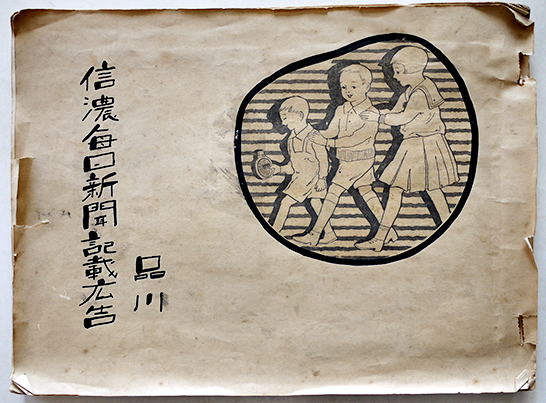 信濃毎日新聞記載広告
品川